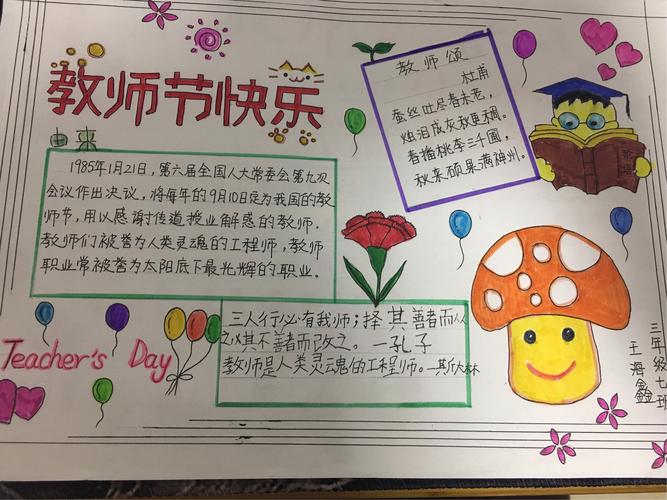 教师节快乐
由来
1985年1月21日,第六届全国人大常委会第九次
会议作出决议,将每年的9月10日定为我国的教
师节,用以感谢传道授业解惑的教师.
教师们被誉为人类灵魂的工程师,教师
职业常被誉为太阳底下最光辉的职业.
教师颂
杜甫
蚕丝吐尽春未老,
烛泪成灰秋更稠。
春播桃李三千圃,
秋来硕果满神州。
三人行必有我师;择其善者而从
之,其不善者而改之。一孔子
教师是人类灵魂的工程师。一斯大林
Teacher's Day
三年级七班
王海鑫